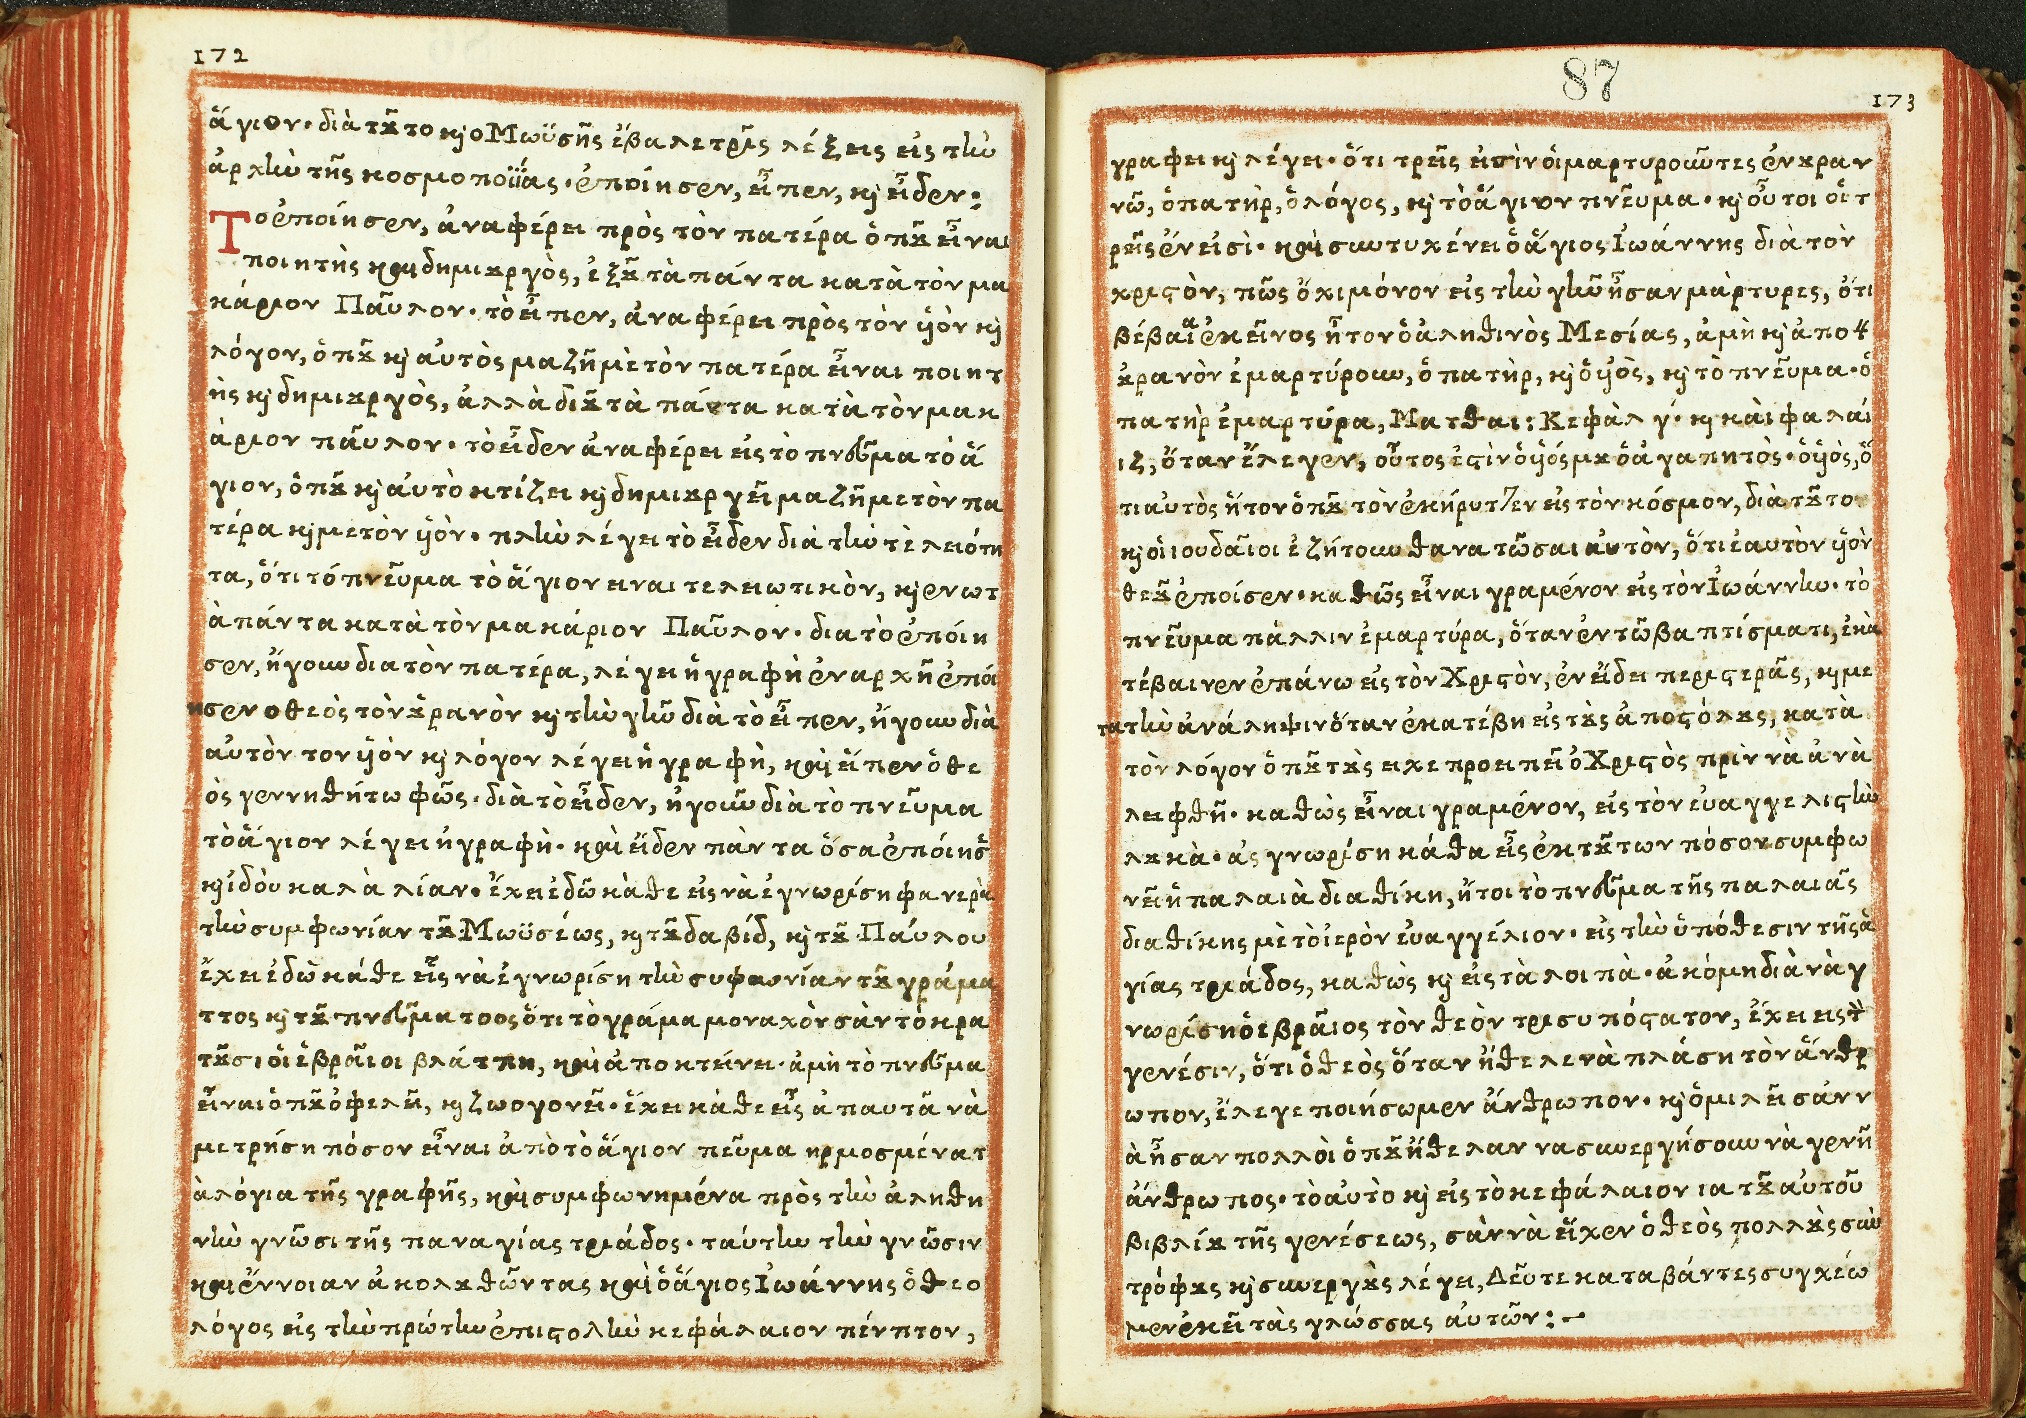 172
ἅγιον· διὰ τȣ͂το κ̀ ο Μωϋσῆς ἔβαλε τρεῖς λέξεις εἰς τὴν
ἀρχὴν τῆς κοσμοποιΐας· ἐποίησεν, εἶπεν, κ̀ εἶδεν:
Τὸ ἐποίησεν, ἀναφέρει πρὸς τὸν πατέρα ὁπȣ͂ εἶναι
ποιητὴς καὶ δημιȣργὸς, ἐξ ȣ͂ τὰ πάντα κατὰ τὸν μα
κάριον Παῦλον· τὸ εἶπεν, ἀναφέρει πρὸς τὸν ὑϊὸν κ̀
λόγον, ὁπȣ͂ κ̀ αὐτὸς μαζῆ μὲ τὸν πατέρα εἶναι ποιητ
ὴς κ̀ δημιȣργὸς, ἀλλὰ δι ȣ͂ τὰ πάντα κατὰ τὸν μακ
άριον παῦλον· τὸ εἶδεν ἀναφέρει εἰς τὸ πνεῦμα τὸ ἅ
γιον, ὁπȣ͂ κ̀ αὐτὸ κτίζει κ̀ δημιȣργεῖ μαζῆ με τὸν πα
τέρα κ̀ με τὸν ὑϊὸν· πλὴν λέγει τὸ εἶδεν διὰ τὴν τὲλειότη
τα, ὅτι τό πνεῦμα τὸ ἅγιον ειναι τελειωτικὸν, κ̀ ενωτ
ὰ πάντα κατὰ τὸν μακάριον Παῦλον· δια τὸ ἐποίη
σεν, ἤγουν δια τὸν πατέρα, λέγει ἡ γραφὴ ἐν αρχῇ ἐποί
ησεν ο θεὸς τὸν ȣ̓ρανὸν κ̀ τὴν γῆν διὰ τὸ εἶπεν, ἤγουν διὰ
αὐτὸν τον ὑϊὸν κ̀ λόγον λέγει ἡ γραφὴ, καὶ εἶπεν ὁ θε
ὸς γεννηθήτω φῶς· διὰ τὸ εἶδεν, ἠγοῦν διὰ τὸ πνεῦμα
τὸ ἅγιον λέγει ἡ γραφὴ· καὶ εἶδεν πὰντα ὅσα ἐποίησε
κ̀ ἰδοὺ καλὰ λίαν· ἔχει ἐδῶ κὰθε εἰς νὰ ἐγνωρίση φανερὰ
τὴν συμφωνίαν τȣ͂ Μωϋσέως, κ̀ τȣ͂ δαβίδ, κ̀ τȣ͂ Παύλου
ἔχει ἐδὼ κάθε εἷς νὰ ἐγνωρίση τὴν συφωνίαν τȣ͂ γράμα
ττος κ̀ τȣ͂ πνεύματοος ὅτι τὸ γράμα μοναχὸν σὰν τὸ κρα
τȣ͂σι οἱ ἑβραῖοι βλάτπη, καὶ ἀποκτένει· ἀμὴ τὸ πνεῦμα
εἶναι ὁπȣ͂ ὀφελεῖ, κ̀ ζωογονεῖ· ἔχει κάθε εἷς ἀπαυτὰ νὰ
μετρήση πόσον εἶναι ἀπὸ τὸ ἅγιον πεῦμα ηρμοσμένα τ
ὰ λόγια τῆς γραφῆς, καὶ συμφωνημένα πρὸς τὴν ἀληθη
νὴν γνῶσι τῆς παναγίας τριάδος· ταύτην τὴν γνῶσιν
καὶ ἔννοιαν ἀκολȣθῶντας καὶ ὁ ἅγιος Ἰωάννης ὁ θεο
λόγος εἰς τὴν πρώτην ἐπιϛολὴν κεφάλαιον πένπτον,
87
173
γραφει κ̀ λέγει· ὅτι τρεῖς εἰσὶν οἱ μαρτυροῦντες ἐν ȣραν
νῶ, ὁ πατὴρ, ὁ λόγος, κ̀ τὸ ἅγιον πνεῦμα· κ̀ οὗτοι οἱ τ
ρεῖς ἕν εἰσὶ· καὶ συντυχένει ὁ ἅγιος Ἰωάννης διὰ τὸν
χριϛὸν, πῶς ὄχι μόνον εἰς τὴν γῆν ἦσαν μὰρτυρες, ὅτι
βέβαια ἐκεῖνος ἦτον ὁ ἀληθινὸς Μεσίας, ἀμὴ κ̀ ἀπο τ
ȣρανὸν ἐμαρτύρουν, ὁ πατὴρ, κ̀ ὁ ὑϊὸς, κ̀ τὸ πνεῦμα· ὁ
πατὴρ ἐμαρτύρα, Ματθαι: Κεφὰλ γ· κ̀ κὰι φαλαί
ιζ, ὅταν ἔλεγεν, οὗτος ἐϛὶν ὁ ὑϊός μȣ ὁ ἀγαπητὸς· ὁ ὑϊὸς, ὅ
τι αυτὸς ἤτον ὁπȣ͂ τὸν ἐκήρυττεν εἰς τὸν κόσμον, διὰ τȣ͂το
κ̀ οἱ ιουδαῖοι ἐζήτουν θανατῶσαι αὐτὸν, ὅτι ἑαυτὸν ὑϊὸν
θεȣ͂ ἐποίσεν· καθῶς εἶναι γραμένον εἰς τὸν Ἰωάννην· τὸ
πνεῦμα πάλλιν ἐμαρτύρα, ὅταν ἐν τῶ βαπτίσματι, ἐκα
τέβαινεν ἐπάνω εἰς τὸν Χριϛὸν, ἐν εἴδει περιϛερᾶς, κ̀ με
τα τὴν ἀνάληψιν ὅταν ἐκατέβη εἰς τȣ̀ς ἀποϛόλȣς, κατὰ
τὸν λόγον ὁπȣ͂ τȣ̀ς ειχε προειπεῖ ὁ Χριϛὸς πρὶν νὰ ἀνὰ
λειφθῆ· καθὼς εἶναι γραμένον, εἰς τὸν ευαγγελιϛὴν
λȣκὰ· ἀς γνωρίση κάθα εἷς ἐκ τȣ́των πόσον συμφω
νεῖ ἡ παλαιὰ διαθίκη, ἤτοι τὸ πνεῦμα τῆς παλαιᾶς
διαθίκης μὲ τὸ ἱερὸν ἐυαγγέλιον· εἰς τὴν ὑπόθεσιν τῆς ἁ
γίας τριάδος, καθὼς κ̀ εἰς τὰ λοιπὰ· ἀκόμη διὰ νὰ γ
νωρίση ὁ εβραῖος τὸν θεὸν τρισυπόϛατον, ἔχει εις τὴ
γενέσιν, ὅτι ὁ θεὸς ὅταν ἤθελε νὰ πλάση τὸν ἄνθρ
ωπον, ἔλεγε ποιήσωμεν ἄνθρωπον· κ̀ ὁμιλεῖ σάν ν
ὰ ἦσαν πολλὸι ὁπȣ͂ ἤθελαν να συνεργήσουν νὰ γενῆ
ἄνθρωπος· τὸ αὐτὸ κ̀ εἰς τὸ κεφάλαιον ια τȣ͂ αὐτοῦ
βιβλίȣ τῆς γενέσεως, σὰν νὰ εἶχεν ὁ θεὸς πολλȣ̀ς συν
τρόφȣς κ̀ συνεργȣ̀ς λέγει, Δεῦτε καταβάντες συγχέω
μεν ἐκεῖ τὰς γλώσσας αὐτῶν:~